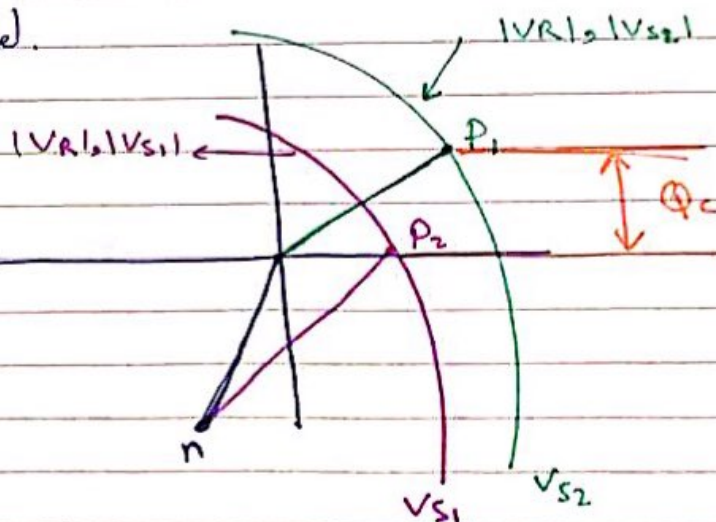 d.
|VR|, |VS2|
|VR|, |VS1|
P1
Qc
P2
n
VS1
VS2